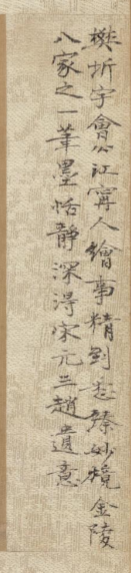 樊圻字會公江寧人繪事精到悉臻妙境金陵
八家之一筆墨恬靜深得宋元三趙遺意